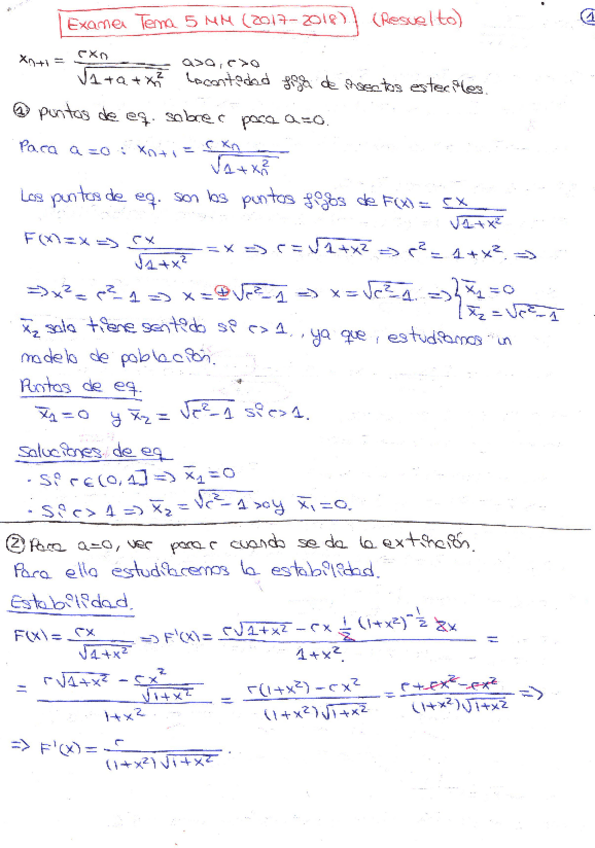 Examen Tema 5 MM (2017-2018) (Resuelto) 1
x_{n+1} = r x_n / √(1+a+x_n²) a>0, r>0
↳ cantidad fija de insectos esteriles.
① puntos de eq. sobre r para a=0.
Para a=0 : x_{n+1} = r x_n / √(1+x_n²)
Los puntos de eq. son los puntos fijos de F(x) = rx / √(1+x²)
F(x)=x => rx / √(1+x²) = x => r = √(1+x²) => r² = 1+x². =>
=> x² = r²-1 => x = ⊕√(r²-1) => x = √(r²-1). => { x̄₁=0
x̄₂ = √(r²-1)
x̄₂ solo tiene sentido si r>1., ya que, estudiamos un
modelo de población.
Puntos de eq.
x̄₁=0 y x̄₂ = √(r²-1) si r>1.
Soluciones de eq
· Si r∈(0,1] => x̄₁=0
· Si r>1 => x̄₂ = √(r²-1) >0 y x̄₁=0.
② Para a=0, ver para r cuando se da la extinción.
Para ello estudiaremos la estabilidad.
Estabilidad.
F(x) = rx / √(1+x²) => F'(x) = (r√(1+x²) - rx ½ (1+x²)^{-½} 2x) / (1+x²). =
= (r√(1+x²) - rx²/√(1+x²)) / (1+x²) = (r(1+x²) - rx²) / ((1+x²)√(1+x²)) = (r+rx²-rx²) / ((1+x²)√(1+x²)) =>
=> F'(x) = r / ((1+x²)√(1+x²)).